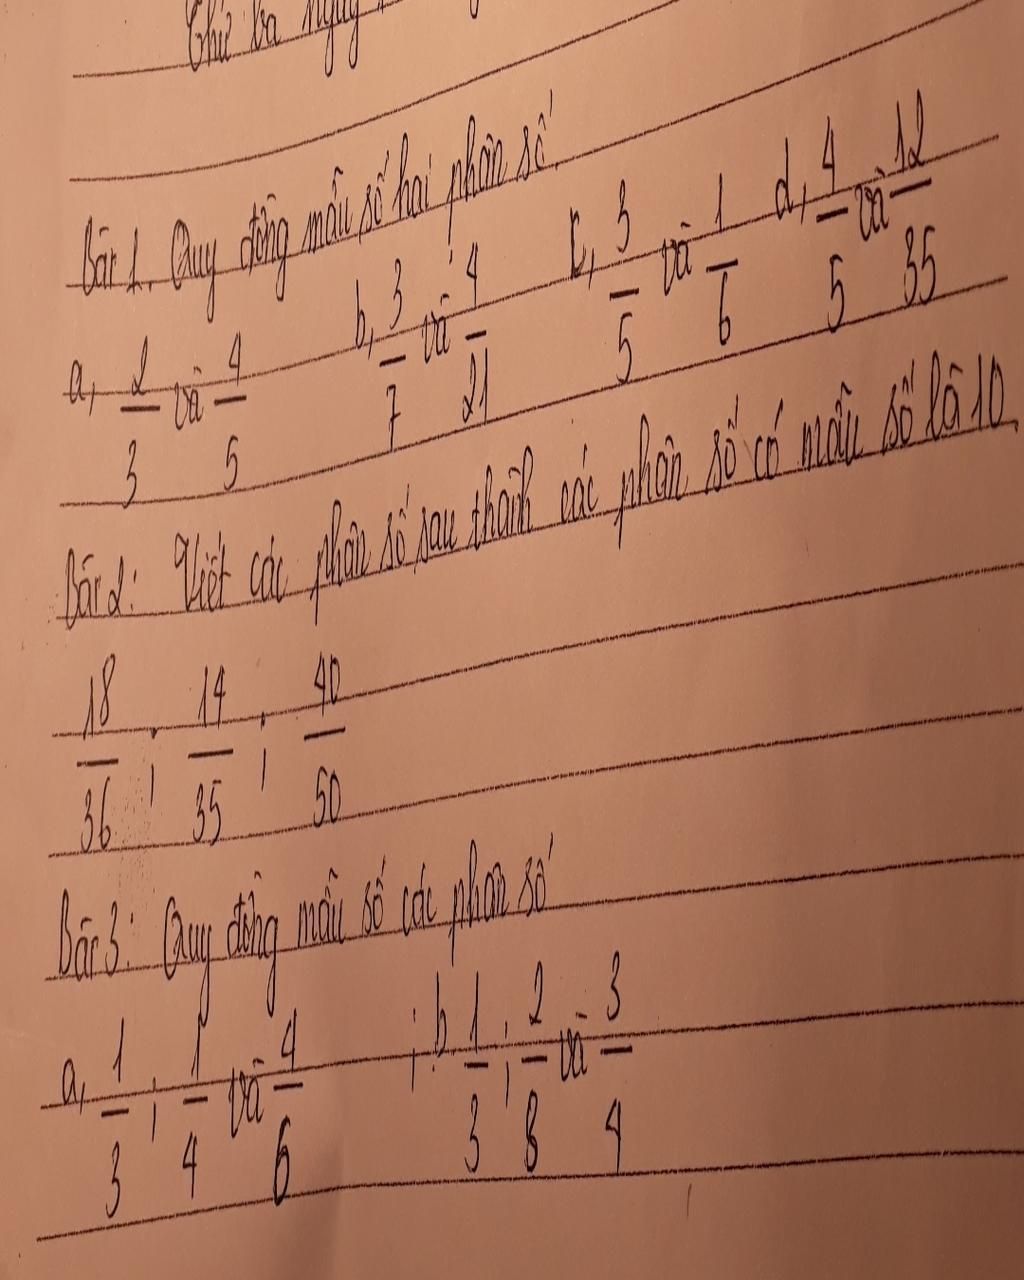 Thứ ba ngày
Bài 1. Quy đồng mẫu số hai phân số.
a, 2/3 và 4/5 b, 3/7 và 4/21 c, 3/5 và 1/6 d, 4/5 và 12/35
Bài 2: Viết các phân số sau thành các phân số có mẫu số là 10.
18/36 ; 14/35 ; 40/50
Bài 3: Quy đồng mẫu số các phân số
a, 1/3 ; 1/4 và 4/6 ; b 1/3 ; 2/8 và 3/4